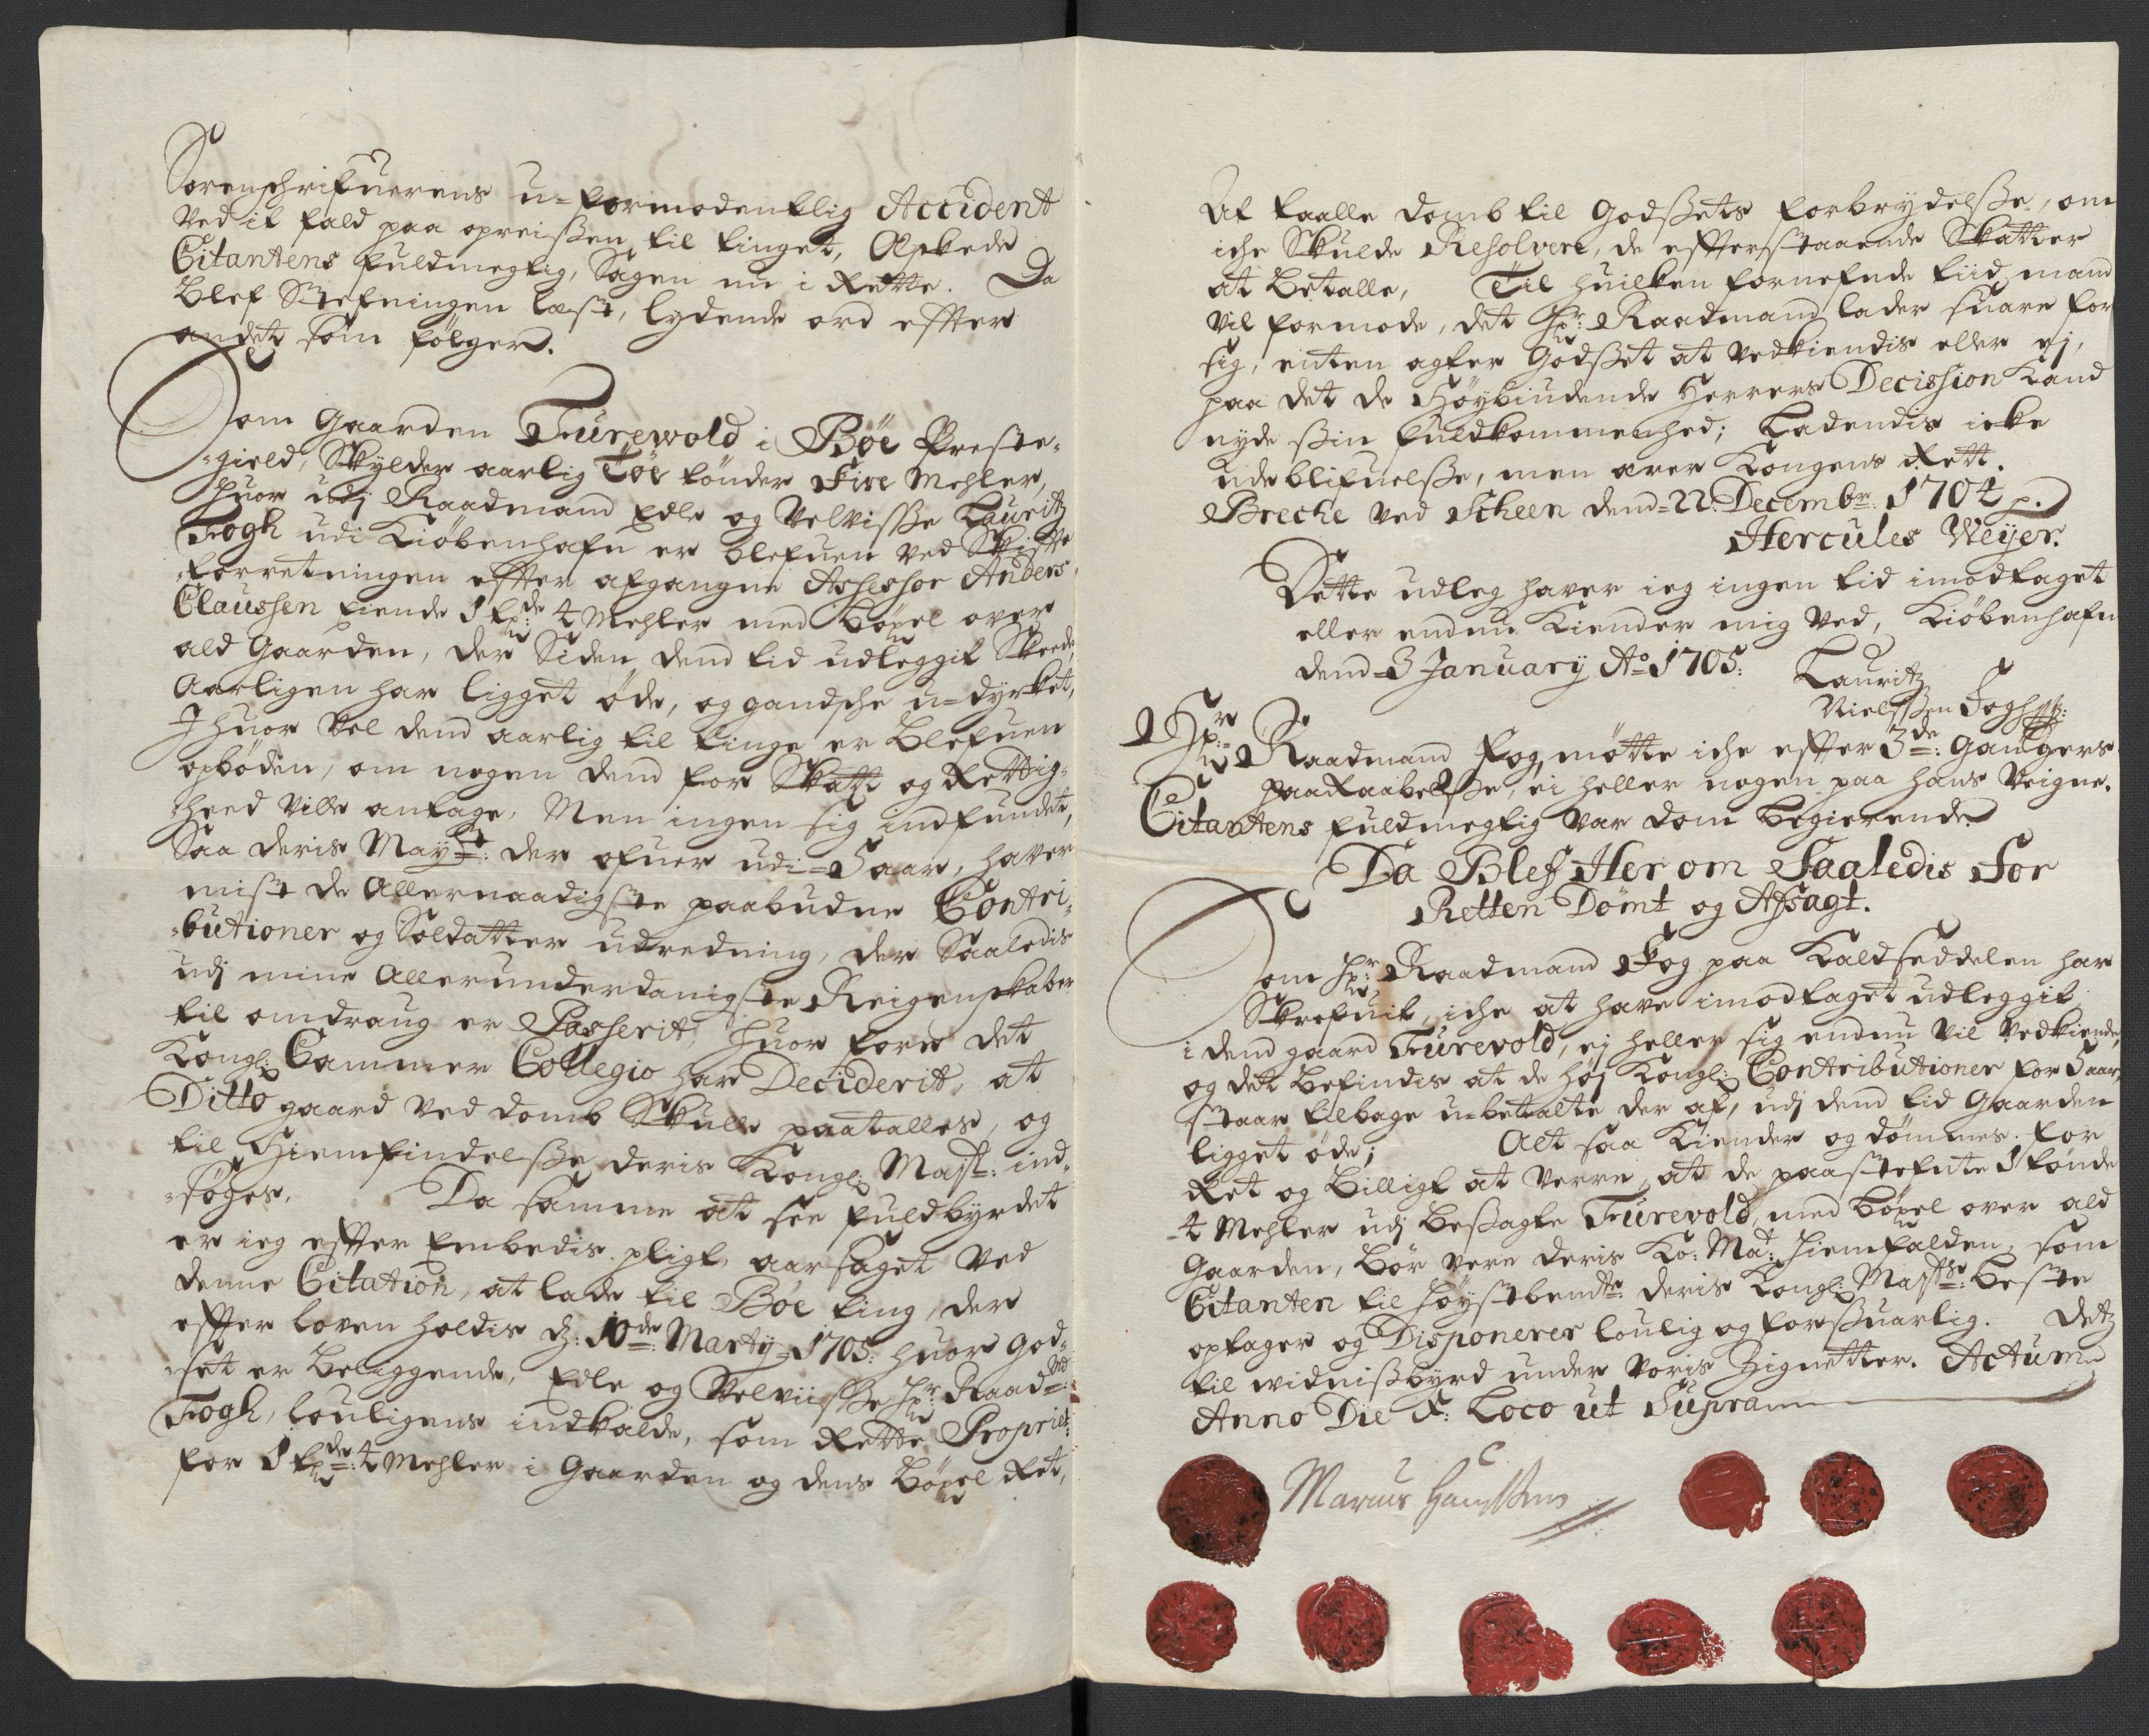 Sorenschrifuerens u-formodentlig Accident
Ved it fald paa opreissen til tinget, Æskede
Citantens fuldmegtig, Sagen nu i Rette. Da
blef Stefningen læst, lydende ord efter
andet som følger.
Som Gaarden Turewold i Bøe Preste-
-gield, Skylder aarlig Toe tønder Fire Mehler,
huor udj Raadmand Edle og Velvisse Lauritz
Fogh udi Kiøbenhafn er blefuen ved Skiffte
-forretningen effter afgangne Assessor Anders
Claussen tiende 1 tde 4 Mehler med bøxel over
ald Gaarden, der Siden dend tid udleggit Skeede,
Aarligen har ligget øde, og gandsche u-dyrket,
Ihuor vel dend aarlig til tinge er blefuen
opbøden, om nogen dend for Skatt og Rettig-
-heed ville antage, Men ingen sig indfundet,
Saa deris Mayst: der ofuer udi 5 aar, haver
mist de Allernaadigste paabudne Contri-
-butioner og Soldatter udredning, der Saaledis
udj mine Allerunderdanigste Reigenskaber
til omdraug er Passerit, huor fore det
Kongl: Cammer Collegio har Deciderit, at
Ditto gaard ved domb Skulle paatalles, og
til Hiemfindelsse deris Kongl: Mayst: ind-
-søges. Da samme at see fuldbyrdet
er ieg effter Embedis pligt, aarsaget ved
denne Citation, at lade til Bøe ting, der
effter loven holdis d: 10de Marty 1705: huor God-
-set er beliggende, Edle og Velviisse Hr: Raadmd:
Fogh, louligens indkalde, som Rette Propriet:
for 1 tde: 4 Mehler i Gaarden og dens bøxel Ret,
At taalle domb til Godssets forbrydelsse, om
iche Skulde Resolvere, de effterstaaende Skatter
at betalle, Til huilken fornefnde tiid mand
vil formode, det Hr: Raadmand lader suare for
sig, enten agter Godsset at vedkiendis eller ej,
paa det de Høybiudende Herrers Decission kand
nyde ssin fuldkommenhed; Ladendis icke
udeblifuelsse, men arer Kongens Rett.
Breche ved Scheen dend 22. Decembr: 1704 p.
Hercules Weyer.
Dette udleg haver ieg ingen tid imodtaget
eller endnu kiender mig ved, Kiøbenhafn
dend 3 January Ao 1705:
Lauritz
Nielssen Fogh
Hr: Raadmand Fog, møtte iche effter 3de: Gangers
paaRaabelsse, ei heller nogen paa hans Veigne.
Citantens fuldmegtig var dom begierende
Da Blef Her om Saaledis For
Retten Dømt og Afsagt.
Som Hr: Raadmand Fog paa Kaldseddelen har
Skrefuit, iche at have imodtaget udleggit
i dend gaard Turevold, ej heller sig endnu vil vedkiende,
og det befindis at de høj Kongl: Contributioner for 5 aar,
staar tilbage u-betalte der af, udj dend tid Gaarden
ligget øde; Alt saa kiender og dømmes for
Ret og billigt at verre, at de paastefnte 1 tønde
4 Mehler udj bessagte Turevold, med bøxel over ald
Gaarden, bør vere deris Ko: Ma: hiemfalden, som
Citanten til høystbemte: deris Kongl: Maysts: beste
optager og Disponerer loulig og forssuarlig. Detz
til widnissbyrd under voris Zignetter. Actum
Anno Die &: Loco ut Supra
Marcus Hanssen